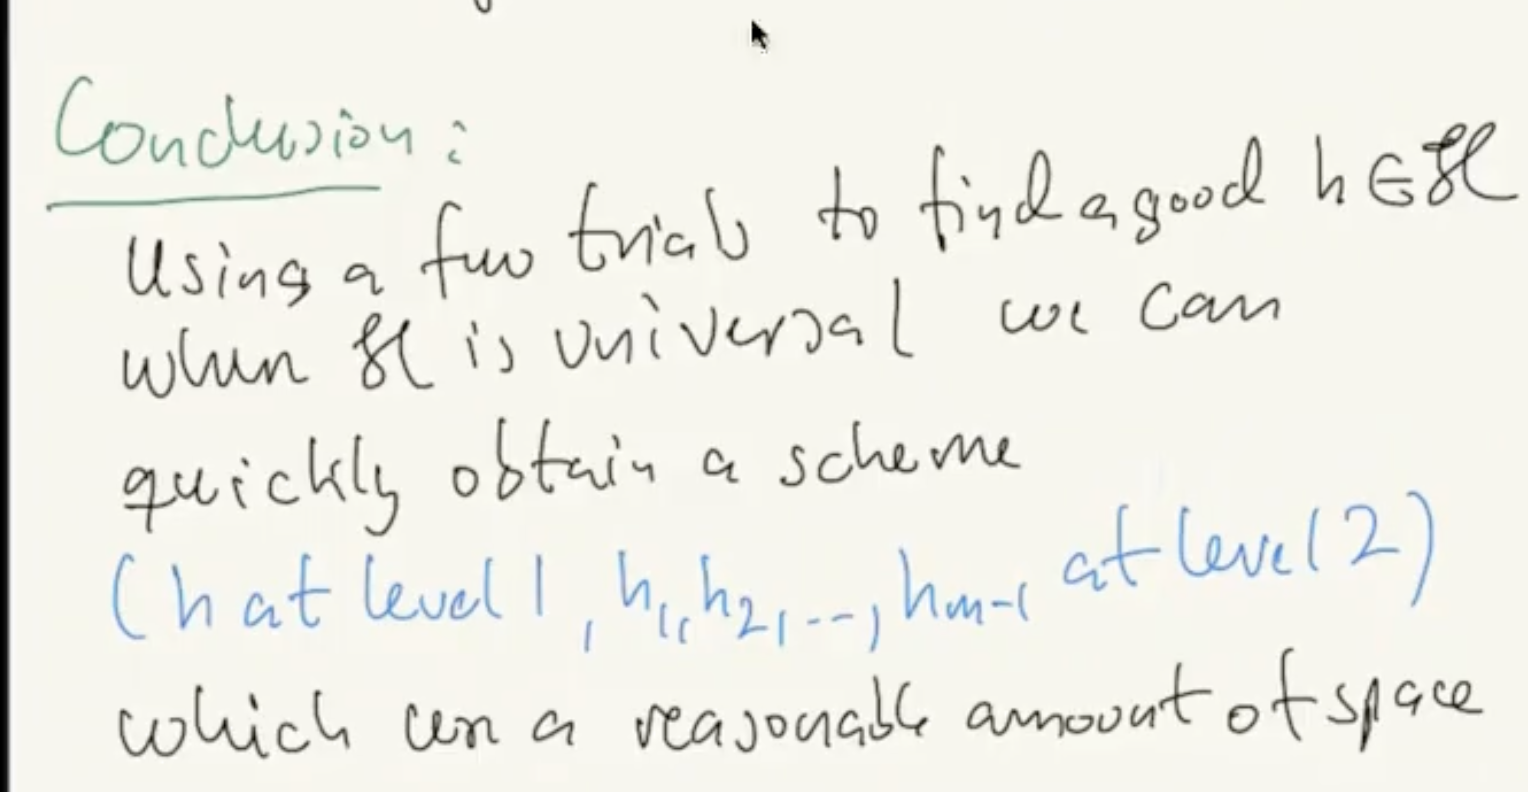 Conclusion:
Using a few trials to find a good h ∈ ℋ
when ℋ is universal we can
quickly obtain a scheme
(h at level 1, h₁, h₂, ..., hₘ₋₁ at level 2)
which a reasonable amount of space